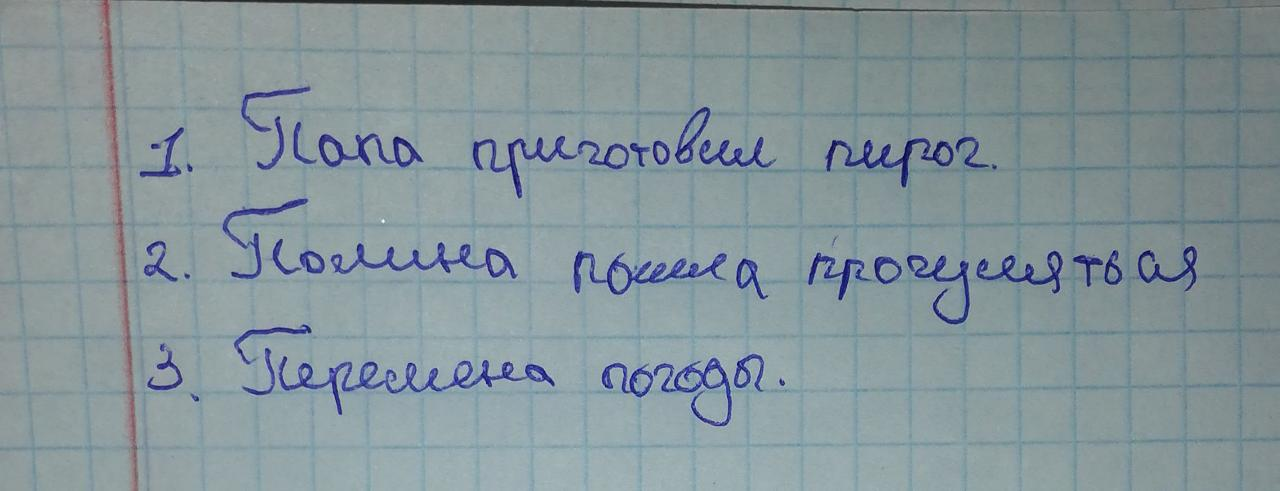 1. Папа приготовил пирог.
2. Полина пошла прогуляться
3. Перемена погоды.